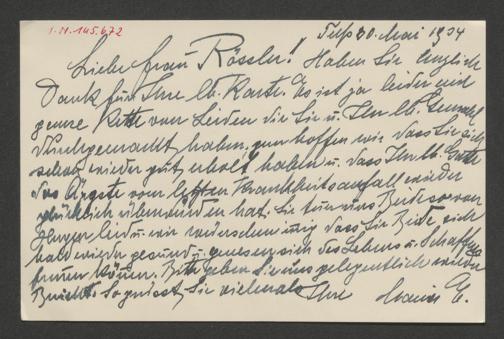 I.N. 145.672
Telfs 30. Mai 1934
Liebe Frau Rössler! Haben Sie
Dank für Ihre lb. Karte. Es ist ja leider eine
ganze Kette von Leiden die Sie u. Ihr lb. Gemahl
durchgemacht haben, nun hoffen wir dass Sie sich
schon wieder gut erholt haben u. dass Ihr lb. Gatte
das Ärgste vom letzten Krankheitsanfall wieder
glücklich überwunden hat. Sie tun uns Beide so von
Herzen leid u. wir wünschen dass Sie Beide sich
bald wieder gesund u. genesen sich des Lebens u. Schaffens
freuen können. Bitte geben Sie uns gelegentlich wieder
Bericht. So grüsst Sie vielmals Ihre